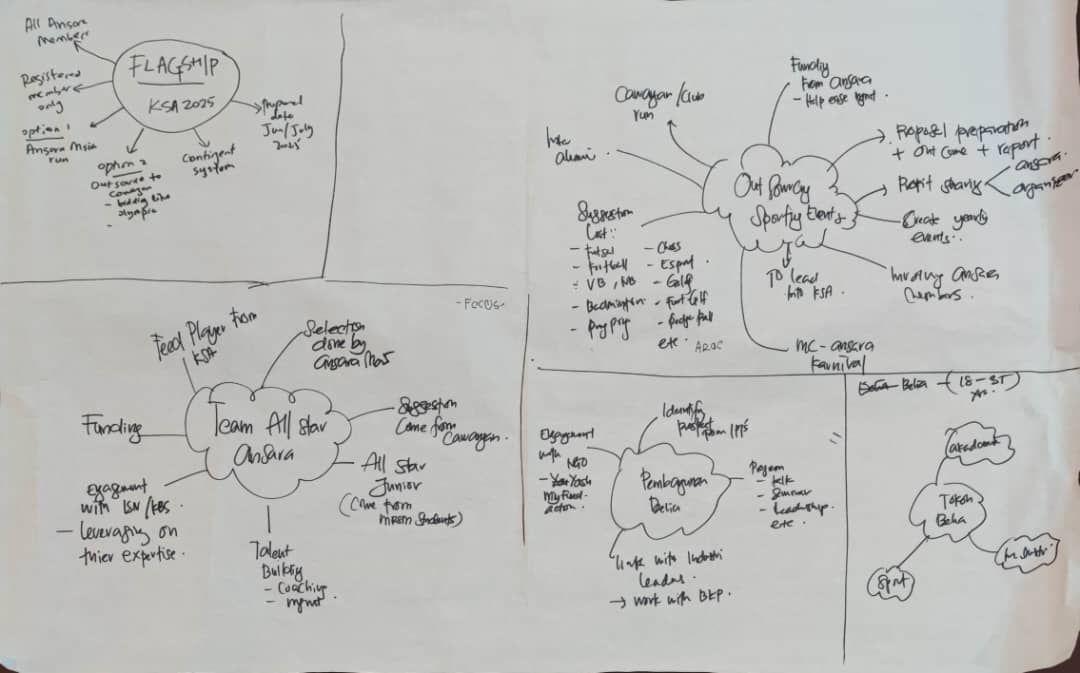 All Ansara
member
Registered
member
only
option 1
Ansara Msia
run
FLAGSHIP
KSA 2025
option 2
Outsource to
Cawangan
- bidding like
olympic
-
Contigent
system
Proposed
date
Jun/July
2025
Outsourcing
Sporting Events
Cawangan/Club
run
alumni
Funding
from ansara
- Help ease mgmt.
Proposal preparation
+ Outcome + report
Profit sharing
ansara
organizer
Create yearly
events.
Involving ansara
members.
To lead
into KSA.
MC-ansara
Karnival
Suggestion
List:
- Futsal
- Football
- VB, NB
- Badminton
- Ping Pong
- Chess
- Esport.
- Golf
- Foot Golf
- Dodge ball
etc.
- Focus -
Team All star
Ansara
Feed Player from
KSA
Selection
done by
Ansara Mas
Suggestion
Come from
Cawangan.
All Star
Junior
(Come from
MRSM Students)
Talent
Building
- Coaching
- mgmt.
Engagment
with ISN/KBS
- leveraging on
thier expertise.
Funding
Pembagunan
Belia
Identify
prospect
from IPTS
Engagement
with
NGO
Program
- talk
- Seminar
- leadership
etc.
link with Industri
leaders.
→ work with BKP.
Belia - (18-35)
Tokoh
Belia
akademi
Industri
Sport